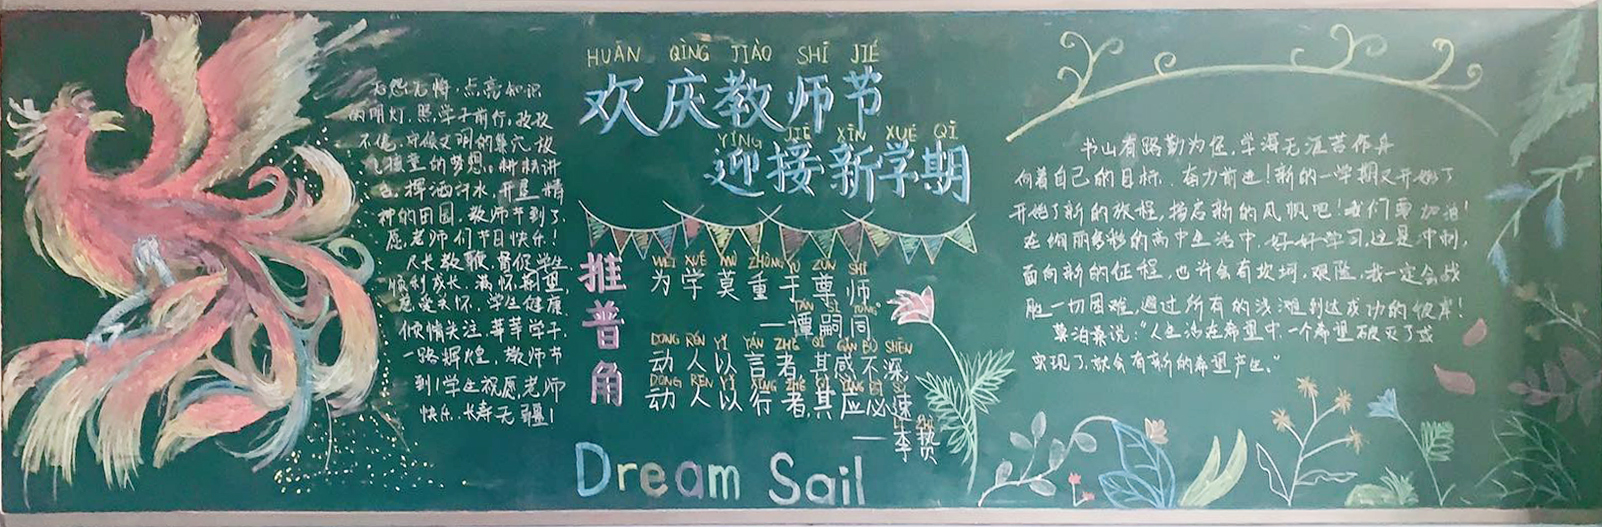 无怨无悔，点亮知识
的明灯，照学子前行，孜孜
不倦，守候文明的巢穴，放
飞稚童的梦想。耕耘讲
台，挥洒汗水，开垦精
神的田园，教师节到了，
愿老师们节日快乐！
尺长教鞭，督促学生
顺利成长，满怀期望，
慈爱关怀，学生健康
倾情关注，莘莘学子，
一路辉煌，教师节
到！学生祝愿老师
快乐，长寿无疆！
HUĀN QÌNG JIÀO SHĪ JIÉ
欢庆教师节
YÍNG JIĒ XĪN XUÉ QĪ
迎接新学期
推普角
WÈI XUÉ MÒ ZHÒNG YÚ ZŪN SHĪ
为学莫重于尊师
TÁN SÌ TÓNG
—谭嗣同
DÒNG RÉN YǏ YÁN ZHĚ QÍ GǍN BÙ SHĒN
动人以言者，其感不深，
DÒNG RÉN YǏ XÍNG ZHĚ QÍ YÌNG BÌ
动人以行者，其应必速
—李贽
Dream Sail
书山有路勤为径，学海无涯苦作舟
向着自己的目标，奋力前进！新的一学期又开始了
开始了新的旅程，扬起新的风帆吧！我们要加油！
在绚丽多彩的高中生活中，好好学习，这是冲刺，
面向新的征程，也许会有坎坷，艰险，我一定会战
胜一切困难，通过所有的浅滩到达成功的彼岸！
莫泊桑说："人生活在希望中，一个希望破灭了或
实现了，就会有新的希望产生。"